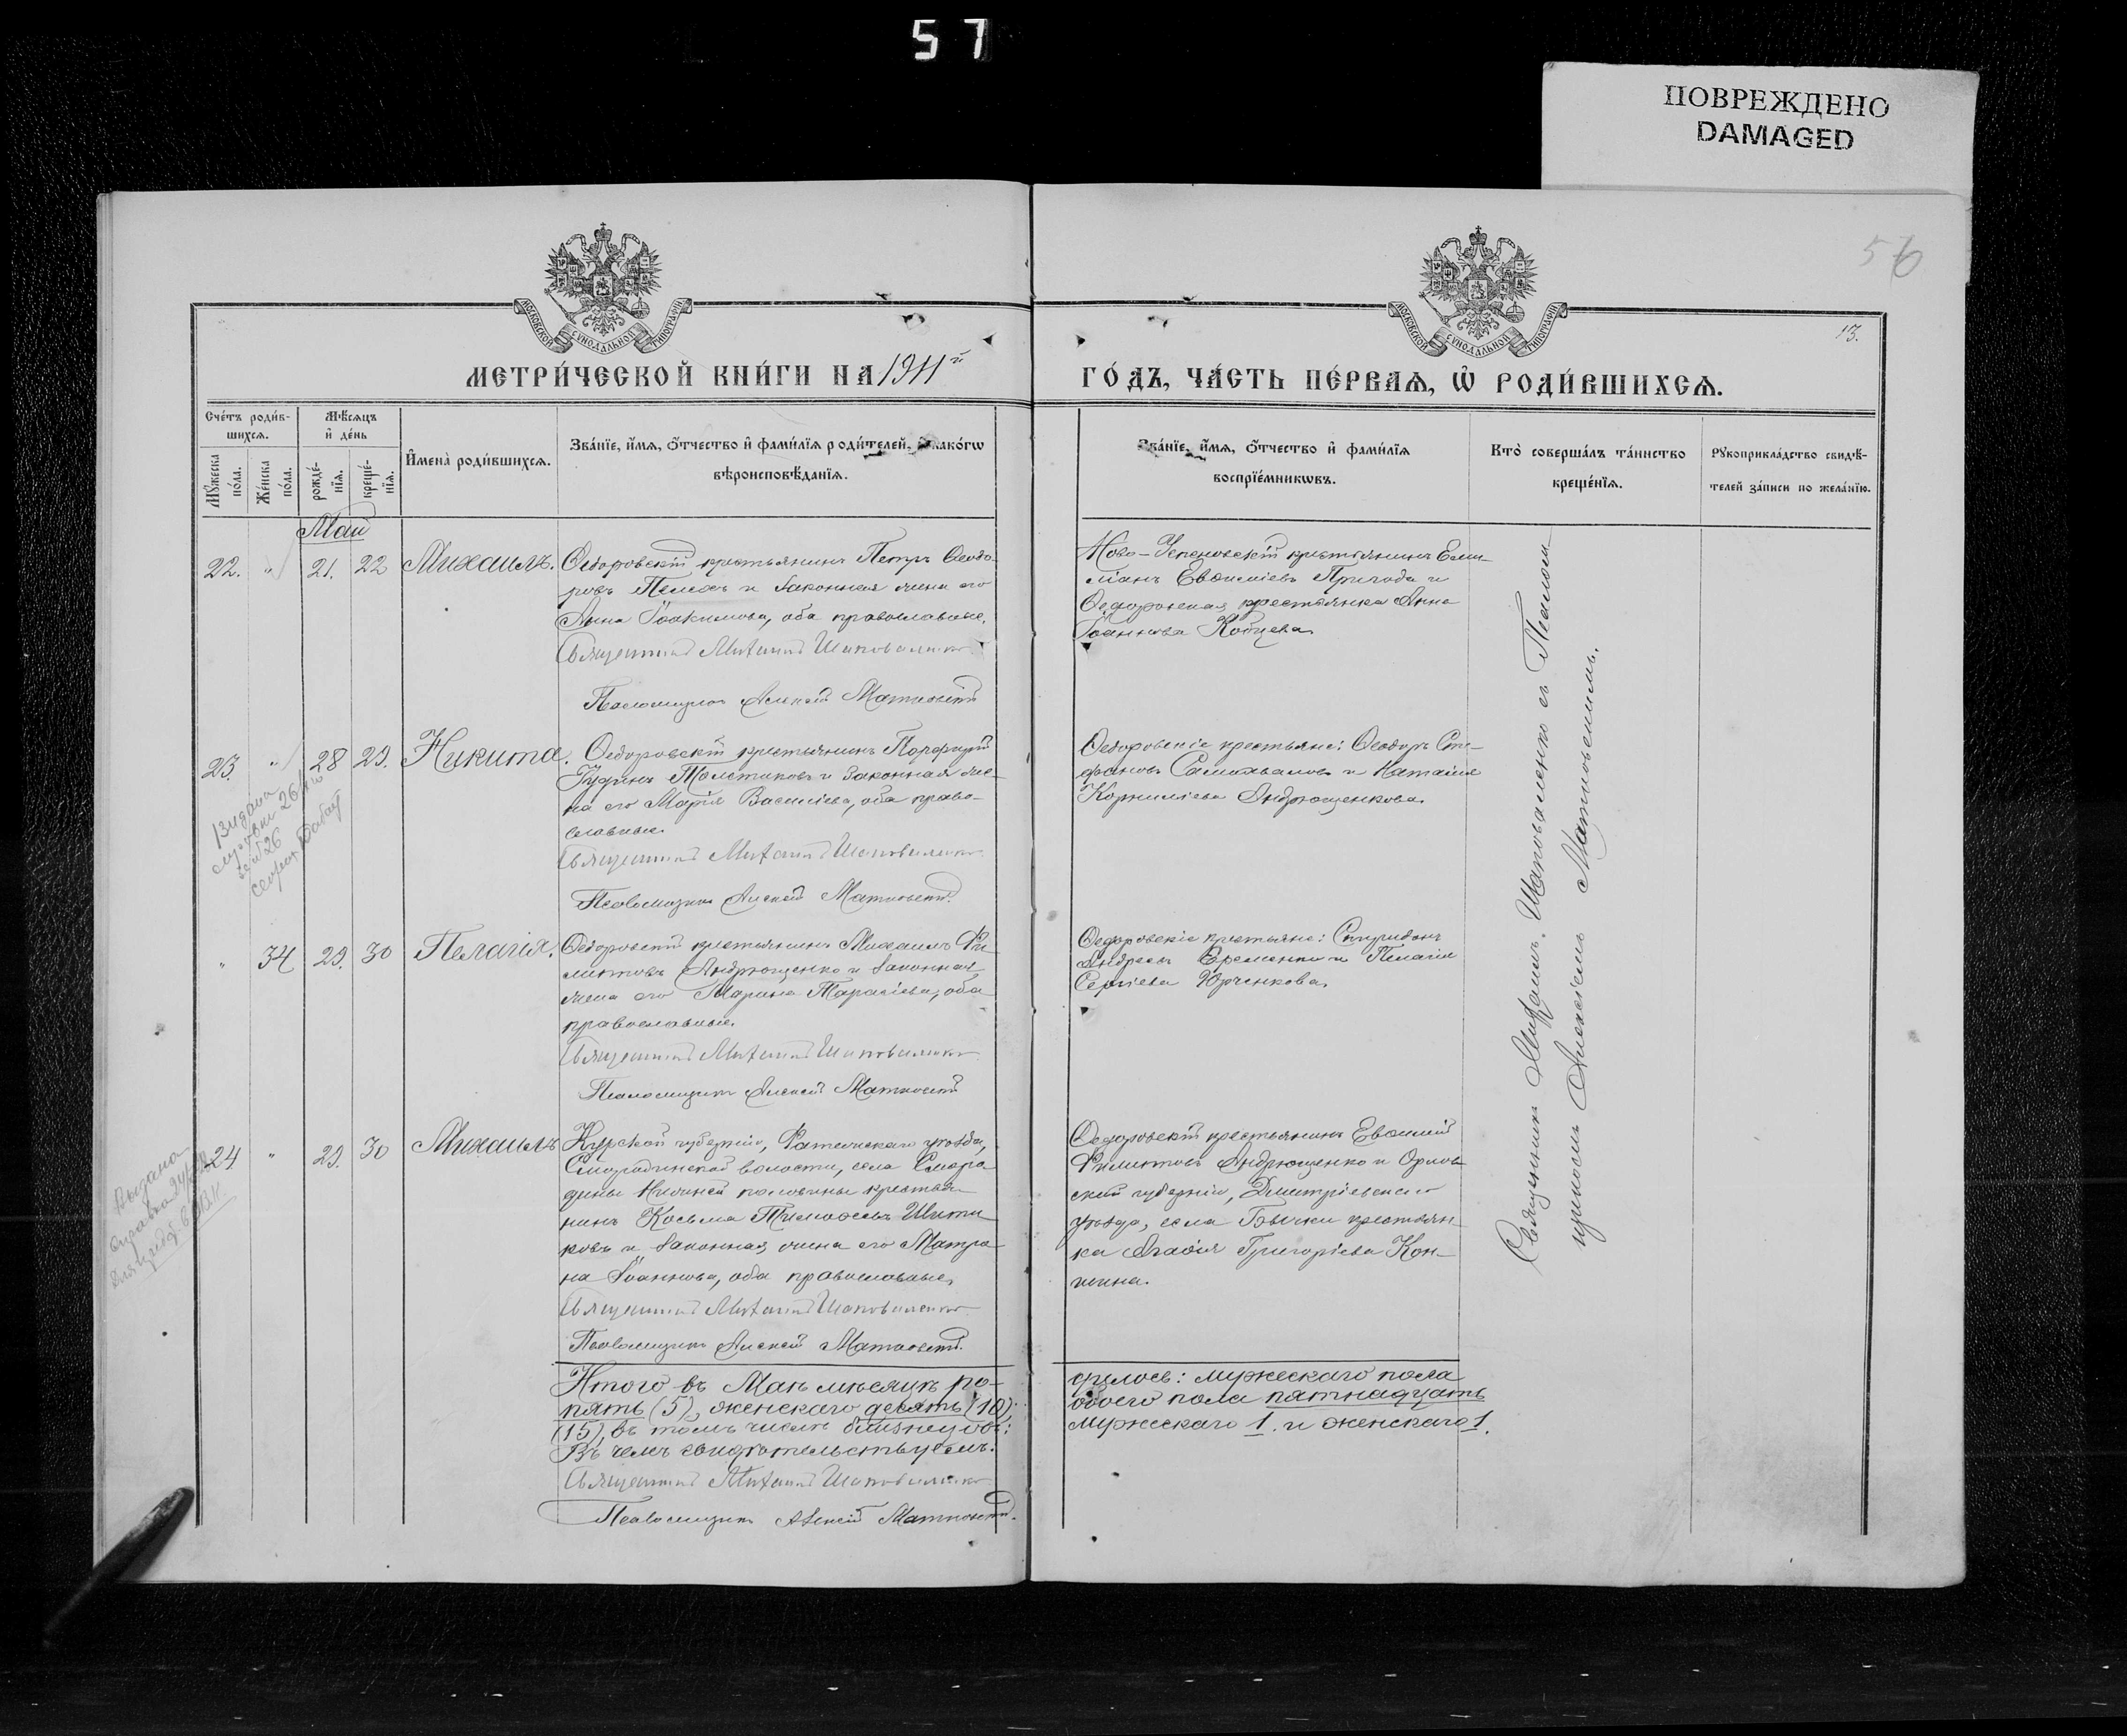 57
ПОВРЕЖДЕНО
DAMAGED
56
13.
МОСКОВСКОЙ СѴНОДАЛЬНОЙ ТИПОГРАФІИ
МОСКОВСКОЙ СѴНОДАЛЬНОЙ ТИПОГРАФІИ
МЕТРИ́ЧЕСКОЙ КНИ́ГИ НА 1911й
ГО́ДЪ, ЧА́СТЬ ПЕ́РВАѦ, Ѡ҆ РОДИ́ВШИХСѦ.
Сче́тъ роди́в-
шихсѧ.
Мꙋ́жеска по́ла.
Же́нска по́ла.
Мѣ́сѧцъ
и҆ де́нь
рожде́-
нїѧ.
креще́-
нїѧ.
И҆мена̀ роди́вшихсѧ.
Зва́нїе, и҆́мѧ, ѻ҆́тчество и҆ фами́лїѧ роди́телей, и҆ како́гѡ
вѣроисповѣ́данїѧ.
Зва́нїе, и҆́мѧ, ѻ҆́тчество и҆ фами́лїѧ
воспрїе́мникѡвъ.
Кто̀ соверша́лъ та́инство
креще́нїѧ.
Рꙋкоприкла́дство свидѣ́-
телей за́писи по жела́нїю.
Май
22. " 21. 22 Михаилъ.
Ѳедоровскій крестьянинъ Петръ Ѳеодо-
ровъ и законная жена его
Анна Іоакимова, оба православные.
Священникъ Михаилъ Шаповаленко
Псаломщикъ Алексій Матковскій
Ново-Успеновскій крестьянинъ Еми-
ліанъ Евѳиміевъ Пригода и
Ѳедоровская крестьянка Анна
Іоаннова Кобцева.
23. " 28 29. Никита.
Ѳедоровскій крестьянинъ Порфирій
Толстиковъ и законная же-
на его Марія Василіева, оба право-
славные.
Священникъ Михаилъ Шаповаленко
Псаломщикъ Алексій Матковскій.
Ѳедоровскіе крестьяне: Ѳеодоръ Сте-
фановъ Самойловъ и Наталія
Корниліева Андрющенкова.
" 34 29. 30 Пелагія.
Ѳедоровскій крестьянинъ Михаилъ Фи-
липповъ Андрющенко и законная
жена его Марина Тарасіева, оба
православные.
Священникъ Михаилъ Шаповаленко
Псаломщикъ Алексій Матковскій
Ѳедоровскіе крестьяне: Спиридонъ
Андреевъ Еременко и Пелагія
Сергіева Юрченкова.
24 " 29. 30 Михаилъ
Курской губерніи, Фатежскаго уѣзда,
Смородинской волости, села Сморо-
дины Нижней половины крестья-
нинъ Косьма Тимоѳеевъ Шити-
ковъ и законная жена его Матро-
на Іоаннова, оба православные.
Священникъ Михаилъ Шаповаленко
Псаломщикъ Алексій Матковскій.
Ѳедоровскій крестьянинъ Евѳимій
Филипповъ Андрющенко и Орлов-
ской губерніи, Дмитріевскаго
уѣзда, села Бычки крестьян-
ка Агаѳія Григоріева Кон-
шина.
Священникъ Михаилъ Шаповаленко съ Псалом-
щикомъ Алексіемъ Матковскимъ.
Итого въ Маѣ мѣсяцѣ ро- дилось: мужескаго пола
пять (5), женскаго десять (10); обоего пола пятнадцать
(15), въ томъ числѣ близнецовъ: мужескаго 1 и женскаго 1.
Въ чемъ свидѣтельствуемъ:
Священникъ Михаилъ Шаповаленко
Псаломщикъ Алексій Матковскій.